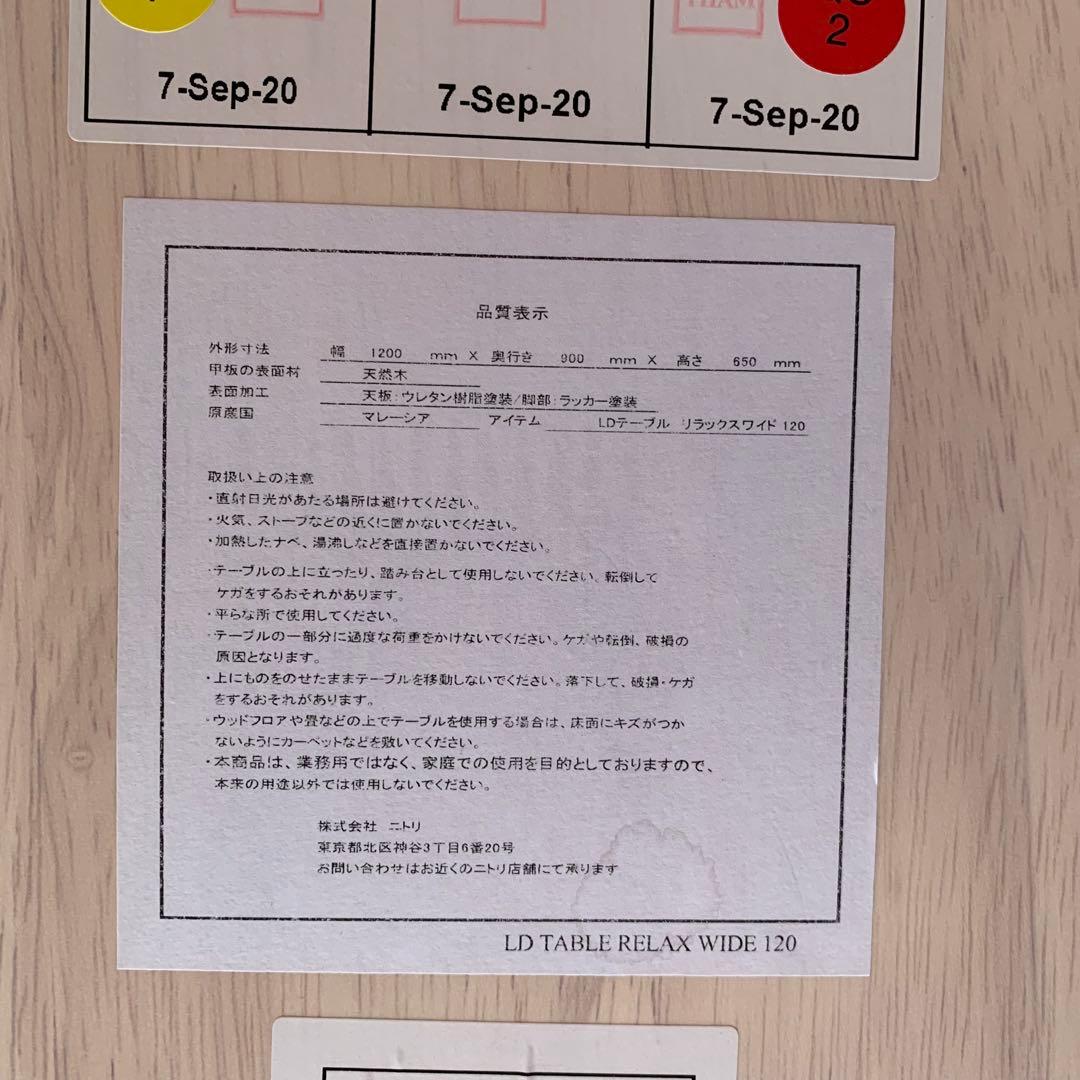 2
7-Sep-20 7-Sep-20 7-Sep-20
品質表示
外形寸法 幅 1200 mm X 奥行き 900 mm X 高さ 650 mm
甲板の表面材 天然木
表面加工 天板:ウレタン樹脂塗装/脚部:ラッカー塗装
原産国 マレーシア アイテム LDテーブル リラックスワイド 120
取扱い上の注意
・直射日光があたる場所は避けてください。
・火気、ストーブなどの近くに置かないでください。
・加熱したナベ、湯沸しなどを直接置かないでください。
・テーブルの上に立ったり、踏み台として使用しないでください。転倒して
ケガをするおそれがあります。
・平らな所で使用してください。
・テーブルの一部分に過度な荷重をかけないでください。ケガや転倒、破損の
原因となります。
・上にものをのせたままテーブルを移動しないでください。落下して、破損・ケガ
をするおそれがあります。
・ウッドフロアや畳などの上でテーブルを使用する場合は、床面にキズがつか
ないようにカーペットなどを敷いてください。
・本商品は、業務用ではなく、家庭での使用を目的としておりますので、
本来の用途以外では使用しないでください。
株式会社 ニトリ
東京都北区神谷3丁目6番20号
お問い合わせはお近くのニトリ店舗にて承ります
LD TABLE RELAX WIDE 120